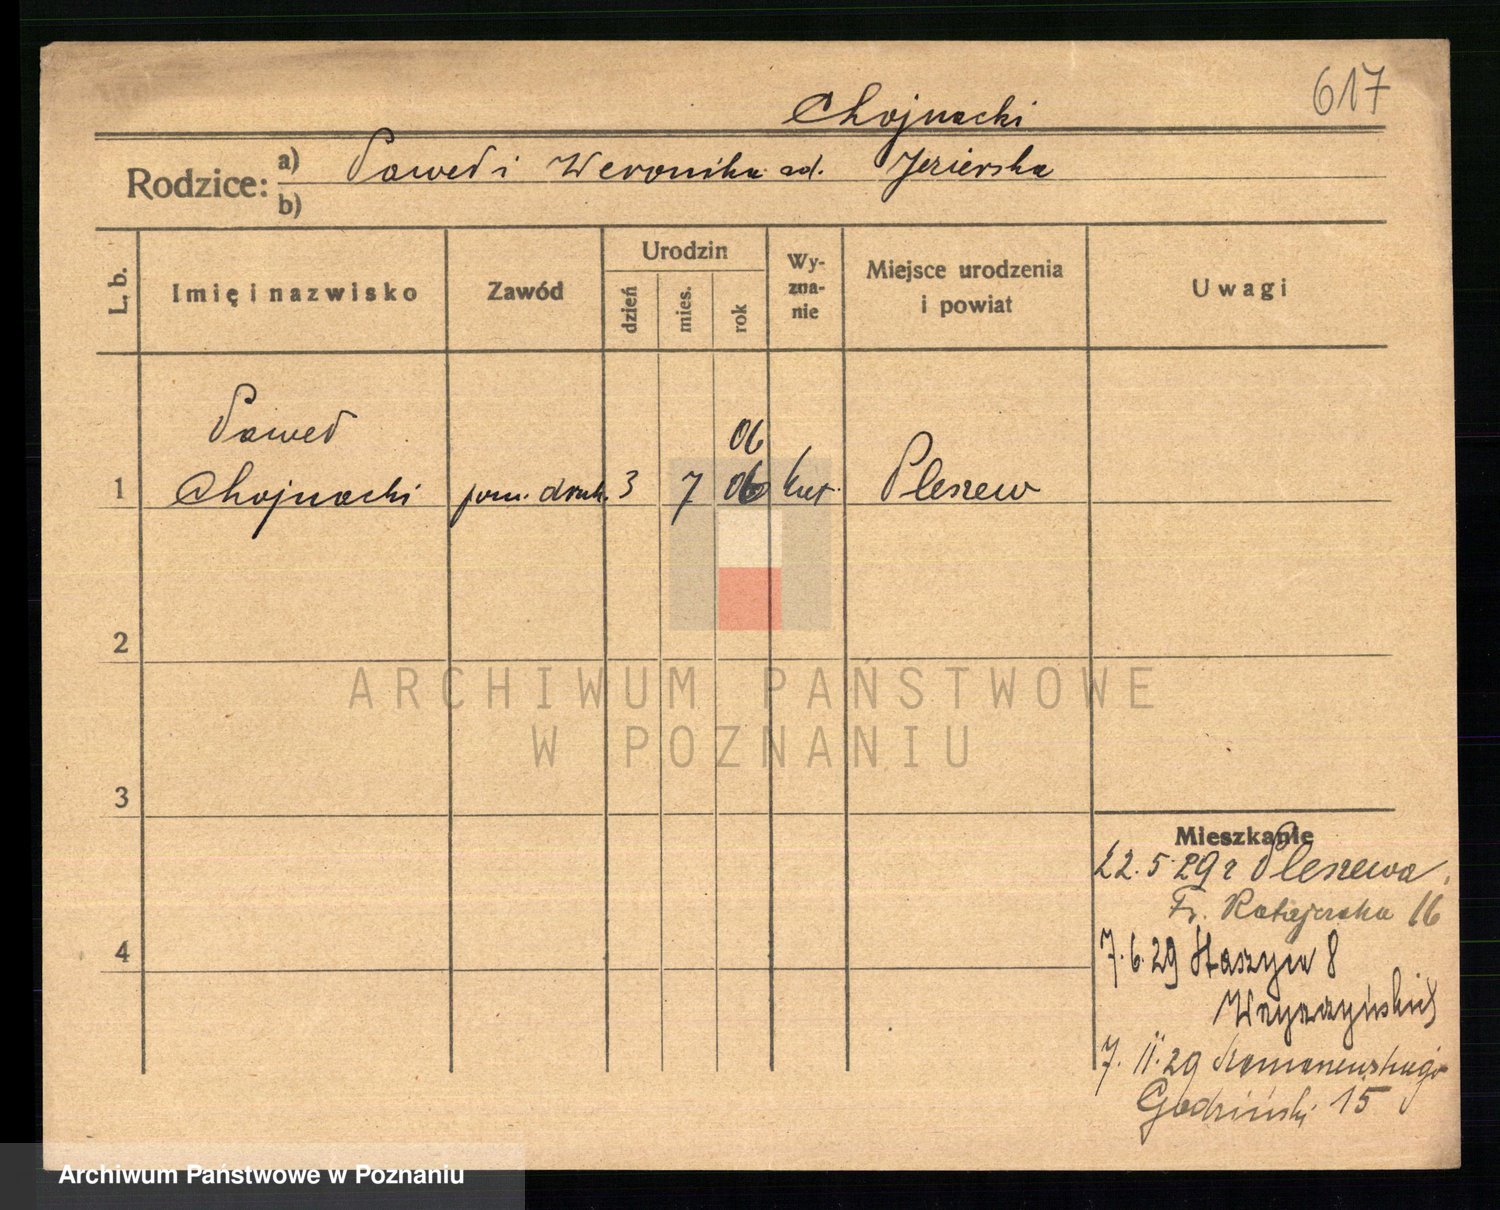 617
Chojnacki
Rodzice: a) Paweł i Weronika zd. Jezierska
b)
L. b. Imię i nazwisko Zawód Urodzin dzień mies. rok Wyznanie Miejsce urodzenia i powiat Uwagi
Paweł 06
1 Chojnacki pom. druk. 3 7 06 kat. Pleszew
2
ARCHIWUM PAŃSTWOWE
W POZNANIU
3
Mieszkanie
22.5.29 z Pleszewa
Fr. Ratajczaka 16
4
7.6.29 Staszyca 8
7.II.29
Godziński 15
Archiwum Państwowe w Poznaniu